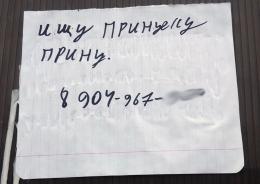 ищу ПРИНЦЕССУ
ПРИНУ.
8 904-967-